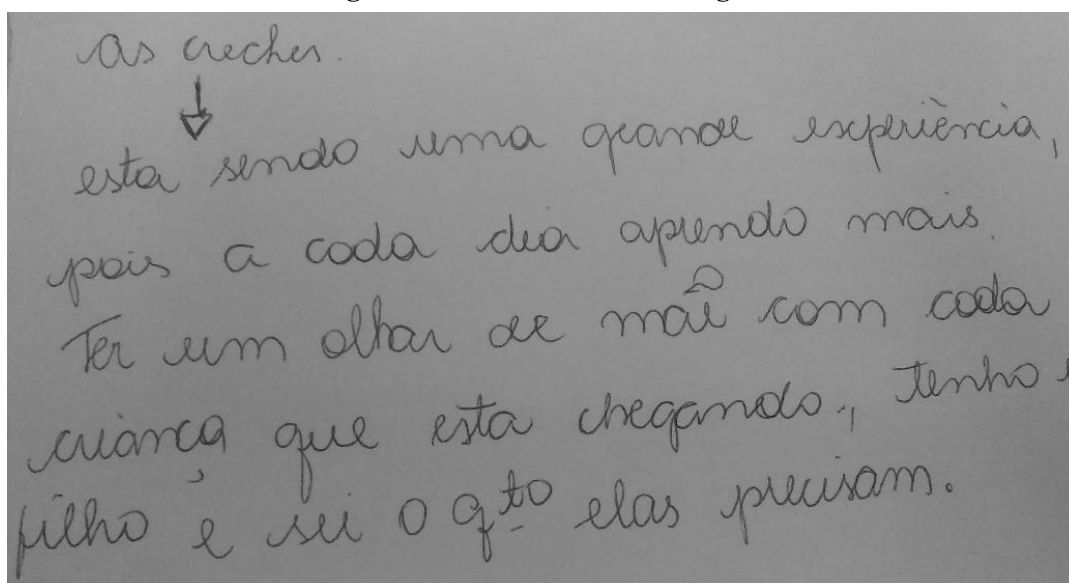 As creches.
esta sendo uma grande experiência,
pois a cada dia aprendo mais.
Ter um olhar de mãe com cada
criança que esta chegando., tenho
filho e sei o q^to elas precisam.